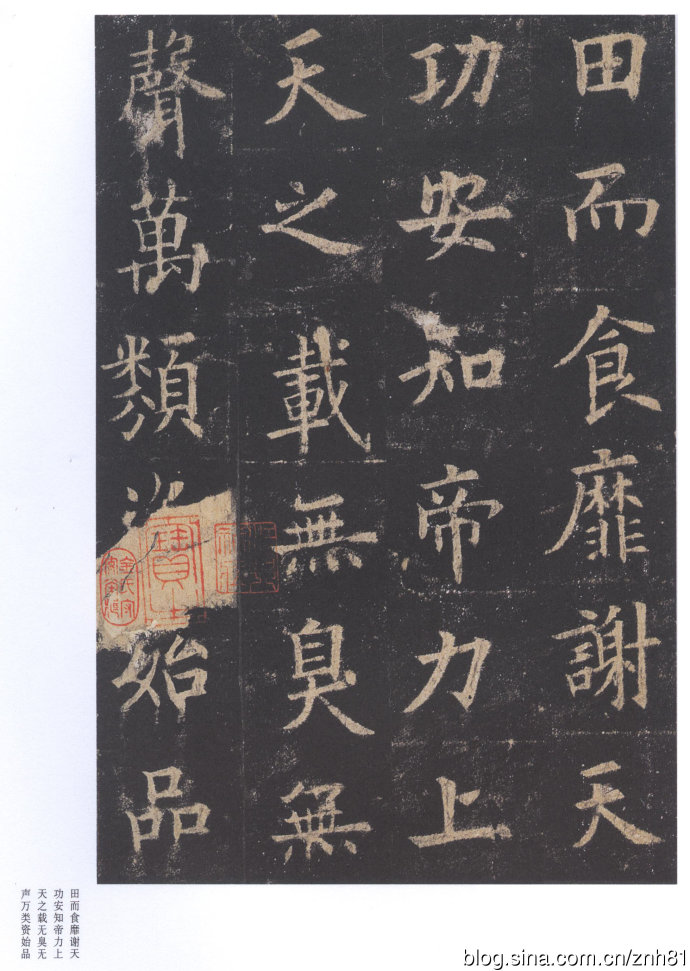 田而食靡謝天
功安知帝力上
天之載無臭無
聲萬類資始品
田而食靡谢天
功安知帝力上
天之载无臭无
声万类资始品
blog.sina.com.cn/znh81